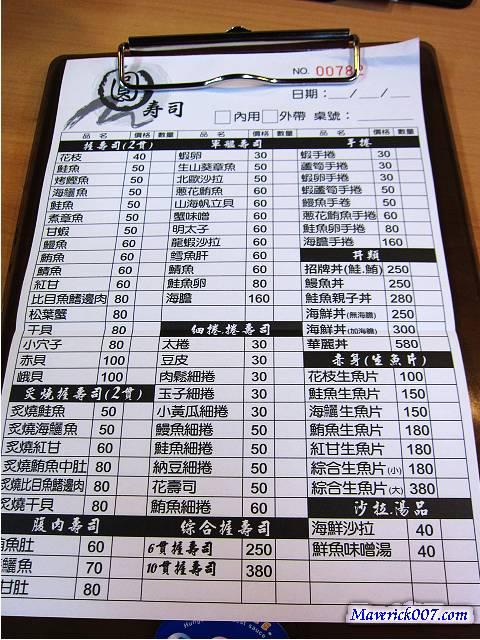 NO. 0078
日期：__/__/__
壽司
內用 外帶 桌號：
品名 價格 數量 品名 價格 數量 品名 價格 數量
握壽司(2貫)
花枝 40
鮭魚 50
烤鰹魚 50
海鱺魚 50
鮭魚肚 50
煮章魚 50
甘蝦 50
鰻魚 60
鮪魚 60
鯖魚 60
紅甘 60
比目魚鰭邊肉 80
松葉蟹 80
干貝 80
小穴子 80
赤貝 100
峨貝 100
炙燒握壽司(2貫)
炙燒鮭魚 50
炙燒海鱺魚 50
炙燒紅甘 60
炙燒鮪魚中肚 80
炙燒比目魚鰭邊肉 80
炙燒干貝 80
腹肉壽司
鮪魚肚 60
鱺魚 70
甘肚 80
軍艦壽司
蝦卵 30
生山葵章魚 50
北歐沙拉 50
蔥花鮪魚 60
山海帆立貝 60
蟹味噌 60
明太子 60
龍蝦沙拉 60
鱈魚肝 60
鯖魚 60
鮭魚卵 80
海膽 160
細捲.捲壽司
太捲 30
豆皮 30
肉鬆細捲 30
玉子細捲 30
小黃瓜細捲 30
鰻魚細捲 50
鮭魚細捲 50
納豆細捲 50
花壽司 50
鮪魚細捲 60
綜合握壽司
6貫握壽司 250
10貫握壽司 380
手捲
蝦手捲 30
蘆筍手捲 30
蝦卵手捲 30
蝦蘆筍手捲 30
鰻魚手捲 50
蔥花鮪魚手捲 60
鮭魚卵手捲 80
海膽手捲 160
丼類
招牌丼(鮭.鮪) 250
鰻魚丼 250
鮭魚親子丼 280
海鮮丼(無海膽) 250
海鮮丼(加海膽) 300
華麗丼 580
赤身(生魚片)
花枝生魚片 100
鮭魚生魚片 150
海鱺生魚片 150
鮪魚生魚片 180
紅甘生魚片 180
綜合生魚片(小) 180
綜合生魚片(大) 380
沙拉.湯品
海鮮沙拉 40
鮮魚味噌湯 40
Maverick007.com